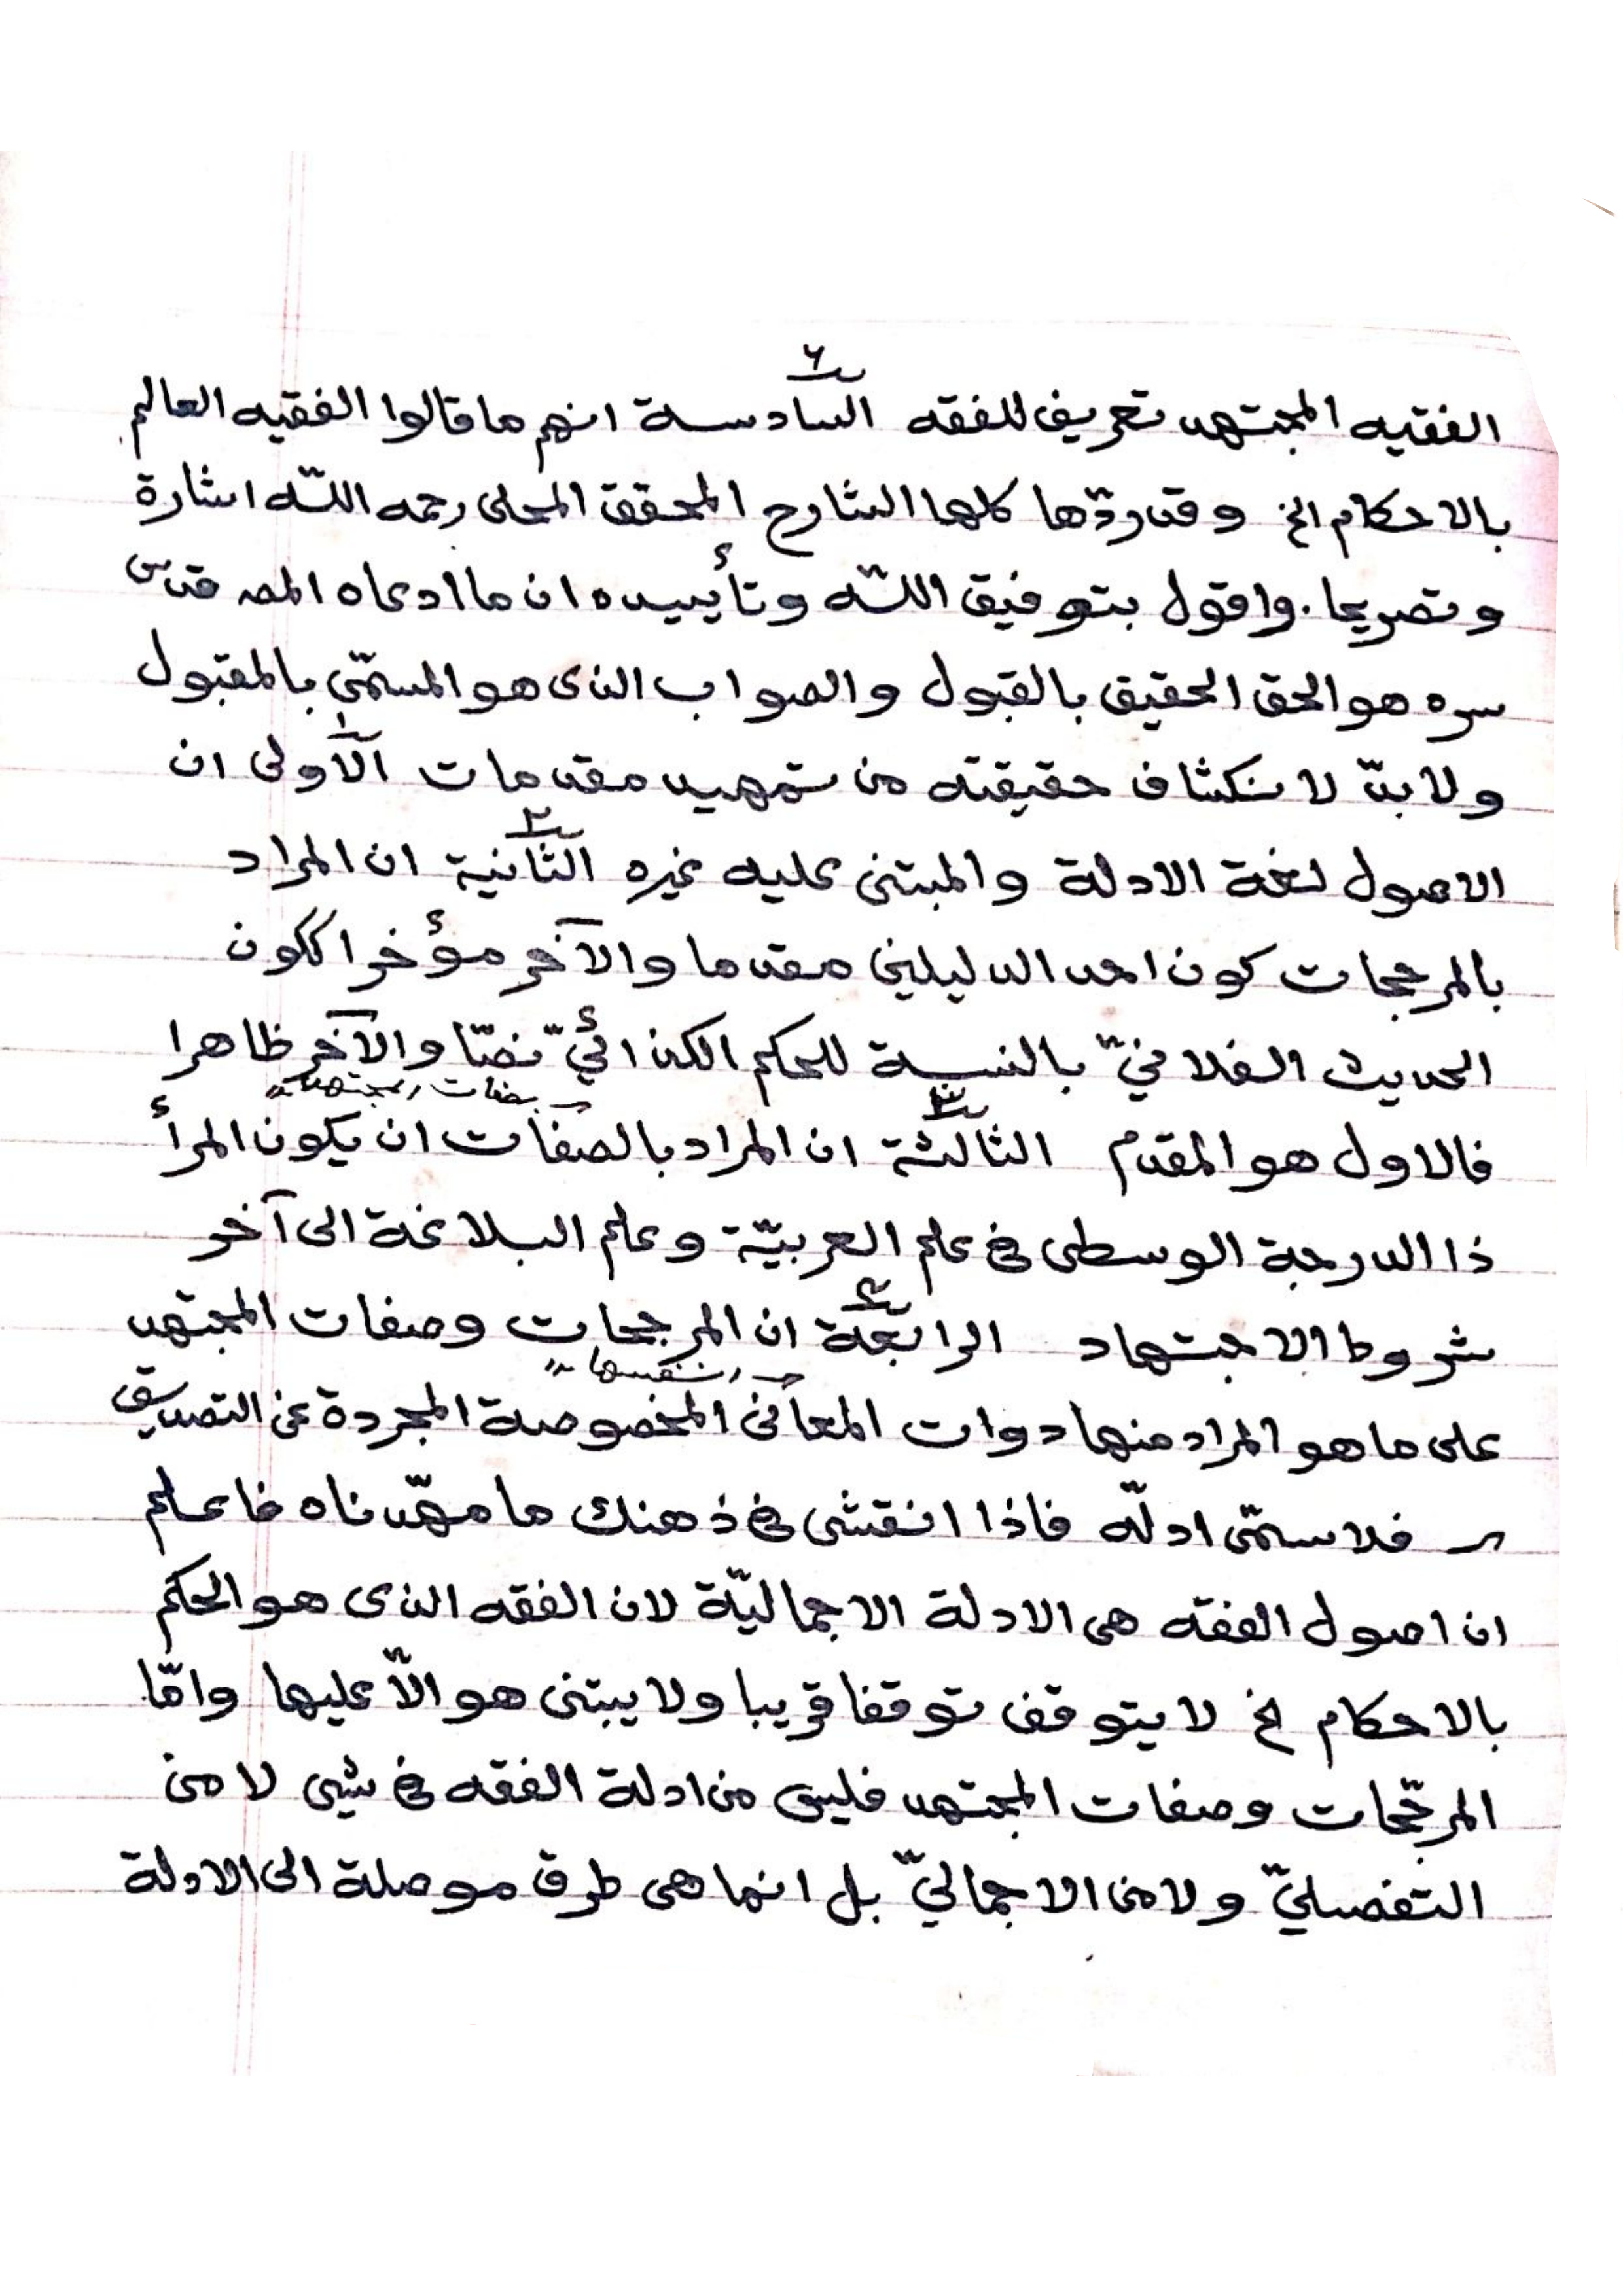 ٦
الفقيه المجتهد تعريف للفقه السادسة انهم ما قالوا الفقيه العالم
بالاحكام الخ وقد ردّها كلها الشارح المحقق المحلى رحمه اللّه اشارة
وتصريحا. واقول بتوفيق اللّه وتأييده ان ما ادعاه المصـ قدس
سره هو الحق الحقيق بالقبول والصواب الذى هو المسمّى بالمقبول
١
ولا بدّ لانكشاف حقيقته من تمهيد مقدمات الاولى ان
٢
الاصول لغة الادلة والمبتنى عليه غيره الثانية ان المراد
بالمرجحات كون احد الدليلين مقدما والآخر مؤخرا ككون
الحديث الفلانيّ بالنسبة للحكم الكذائيّ نصّا والآخر ظاهرا
بصفات المجتهد
٣
فالاول هو المقدم الثالثة ان المراد بالصفات ان يكون المرأ
ذا الدرجة الوسطى فى علم العربيّة وعلم البلاغة الى آخر
٤
شروط الاجتهاد الرابعة ان المرجحات وصفات المجتهد
بنفسها
على ما هو المراد منها ذوات المعانى المخصوصة المجردة عن التصديق
فلا سمّى ادلّه فاذا انتقش فى ذهنك ما مهّدناه فاعلم
ان اصول الفقه هى الادلة الاجماليّة لان الفقه الذى هو الحكم
بالاحكام لخ لا يتوقف توقفا قريبا ولا يبتنى هو الّا عليها وامّا
المرجّحات وصفات المجتهد فليس من ادلة الفقه فى شيى لا من
التفصليّ ولا من الاجماليّ بل انما هى طرق موصلة الى الادلة